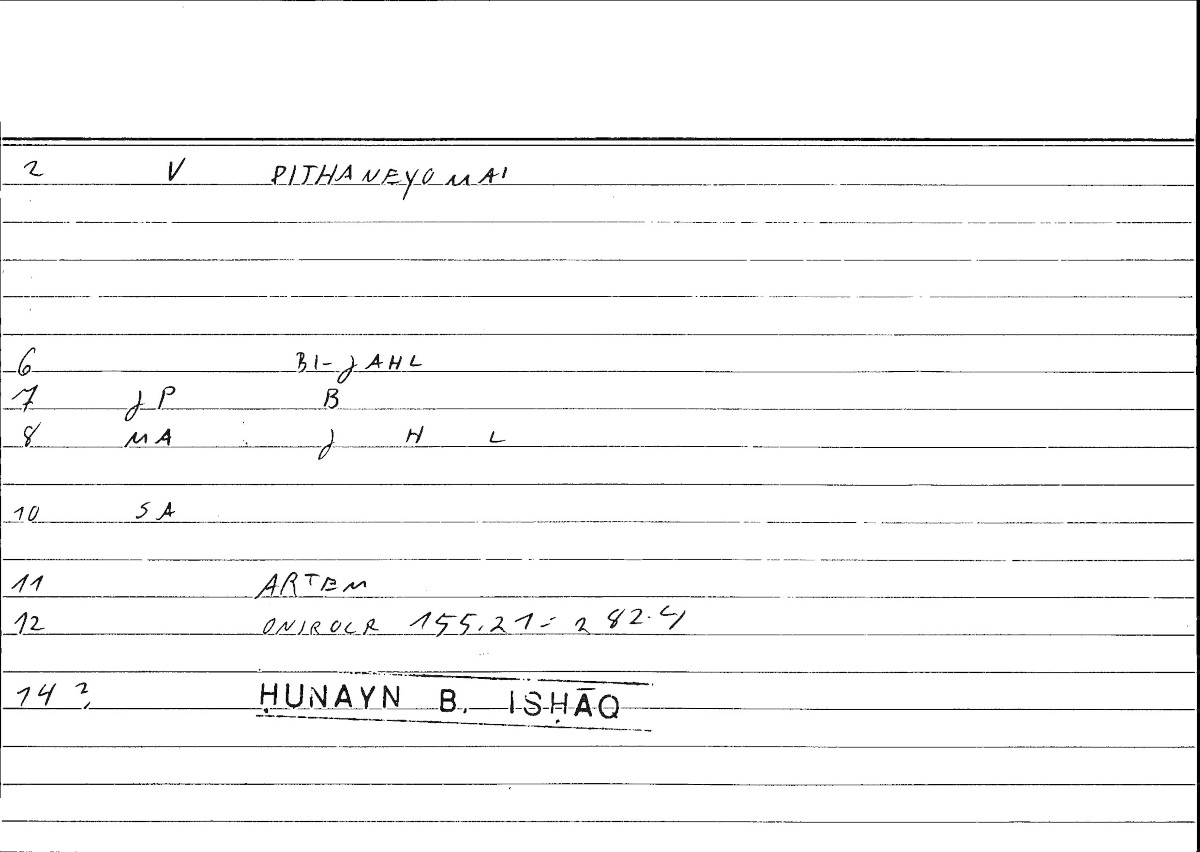 2 V PITHANEYOMAI
6 BI-JAHL
7 JP B
8 MA J H L
10 SA
11 ARTEM
12 ONIROCR 155.21 = 282.4
14 ? ḤUNAYN B. ISḤĀQ